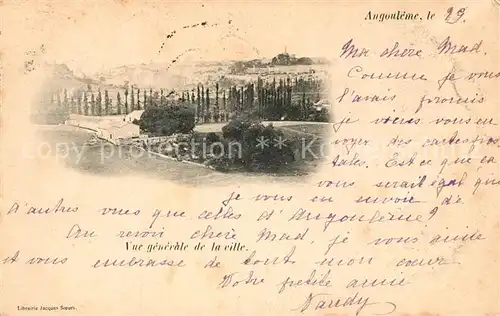 Angoulême, le 29.
Ma chère Mad.
Comme je vous
l'avais promis
je viens vous en
voyer des cartes pos
tales. Est ce que ça
vous serait égal que
je vous en envoie de
d'autres vues que celles d'Angoulême?
Au revoir chère Mad, je vous quitte
Vue générale de la ville.
et vous embrasse de tout mon cœur
Votre petite amie
Librairie Jacques Sœurs.
© copyright